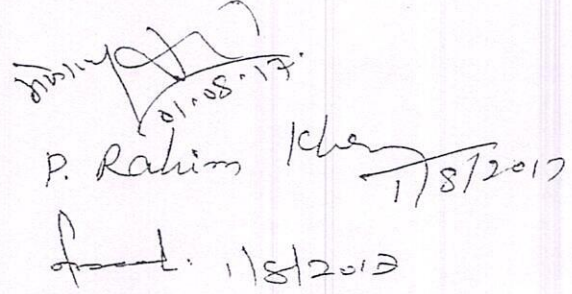 01.08.17.
P. Rahim Khan
1/8/2017
1/8/2017